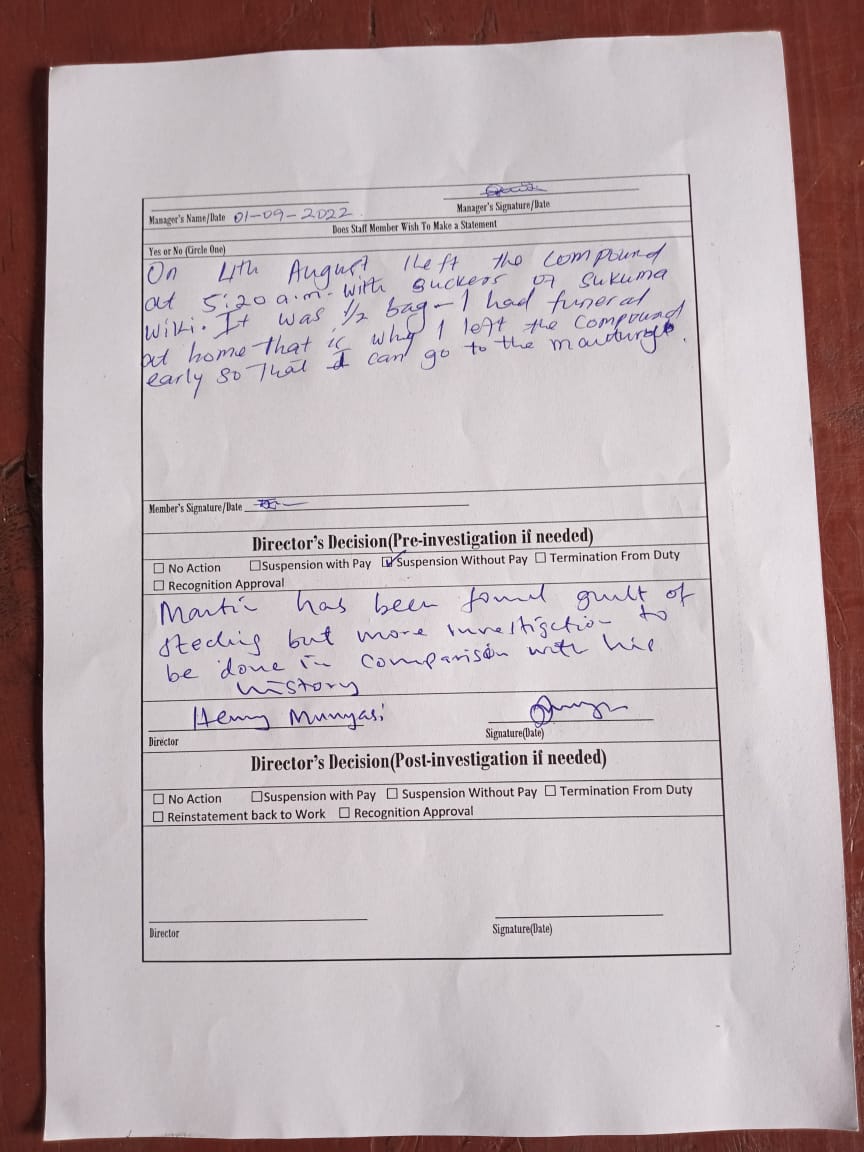 Manager's Name/Date 01-09-2022
Manager's Signature/Date
Does Staff Member Wish To Make a Statement
Yes or No (Circle One)
On 4th August I left the compound
at 5:20 a.m. with suckers of sukuma
wiki. It was 1/2 bag - I had funeral
at home that is why I left the compound
early so that I can go to the
Member's Signature/Date
Director's Decision(Pre-investigation if needed)
☐ No Action ☐Suspension with Pay ☑Suspension Without Pay ☐ Termination From Duty
☐ Recognition Approval
Martin has been found guilt of
stealing but more investigation to
be done in comparison with his
history
Henry Munyasi
Director
Signature(Date)
Director's Decision(Post-investigation if needed)
☐ No Action ☐Suspension with Pay ☐ Suspension Without Pay ☐ Termination From Duty
☐ Reinstatement back to Work ☐ Recognition Approval
Director
Signature(Date)